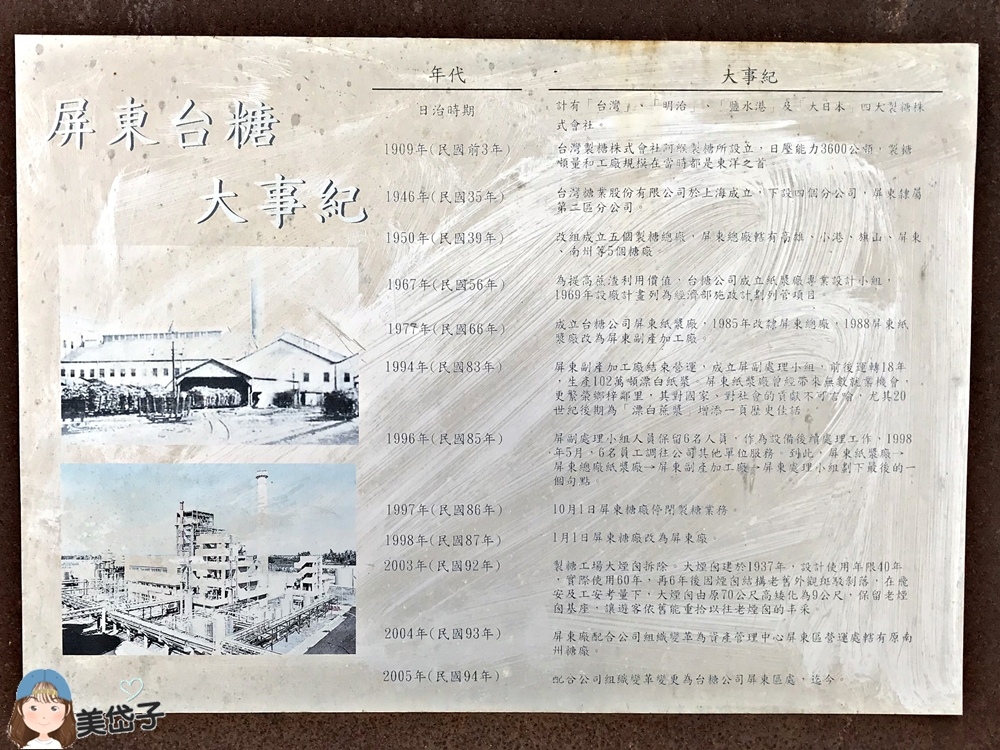 屏東台糖
大事紀
年代
大事紀
日治時期
計有「台灣」、「明治」、「鹽水港」及「大日本」四大製糖株
式會社。
1909年(民國前3年)
台灣製糖株式會社阿緱製糖所設立，日壓能力3600公噸，製糖
噸量和工廠規模在當時都是東洋之首。
1946年(民國35年)
台灣糖業股份有限公司於上海成立，下設四個分公司，屏東隸屬
第二區分公司。
1950年(民國39年)
改組成立五個製糖總廠，屏東總廠轄有高雄、小港、旗山、屏東
、南州等5個糖廠。
1967年(民國56年)
為提高蔗渣利用價值，台糖公司成立紙漿廠專業設計小組，
1969年設廠計畫列為經濟部施政計劃列管項目
1977年(民國66年)
成立台糖公司屏東紙漿廠，1985年改隸屏東總廠，1988屏東紙
漿廠改為屏東副產加工廠。
1994年(民國83年)
屏東副產加工廠結束營運，成立屏副處理小組，前後運轉18年
，生產102萬噸漂白紙漿。屏東紙漿廠曾經帶來無數就業機會，
更繁榮鄉梓鄰里，其對國家、對社會的貢獻不可言喻，尤其20
世紀後期為「漂白蔗漿」增添一頁歷史佳話
1996年(民國85年)
屏副處理小組人員保留6名人員，作為設備後續處理工作，1998
年5月，6名員工調往公司其他單位服務。到此，屏東紙漿廠→
屏東總廠紙漿廠→屏東副產加工廠→屏東處理小組劃下最後的一
個句點
1997年(民國86年)
10月1日屏東糖廠停閉製糖業務。
1998年(民國87年)
1月1日屏東糖廠改為屏東廠。
2003年(民國92年)
製糖工場大煙囪拆除。大煙囪建於1937年，設計使用年限40年
，實際使用60年，再6年後因煙囪結構老舊外觀與駁剝落，在飛
安及工安考量下，大煙囪由原70公尺高矮化為9公尺，保留老煙
囪基座，讓遊客依舊能重拾以往老煙囪的丰采。
2004年(民國93年)
屏東廠配合公司組織變革為資產管理中心屏東區營運處轄有原南
州糖廠。
2005年(民國94年)
配合公司組織變革變更為台糖公司屏東區處，迄今。
美岱子